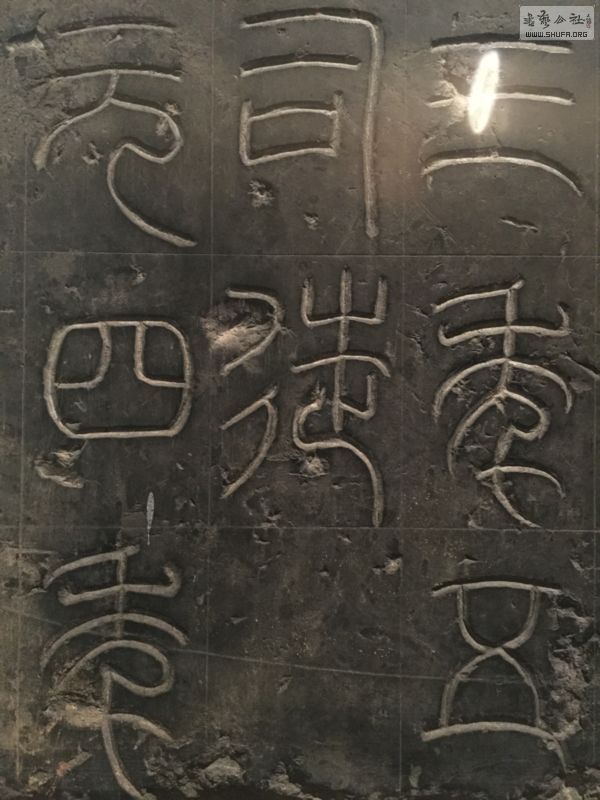 三年五
司徒
元四年
书艺公社
WWW.SHUFA.ORG